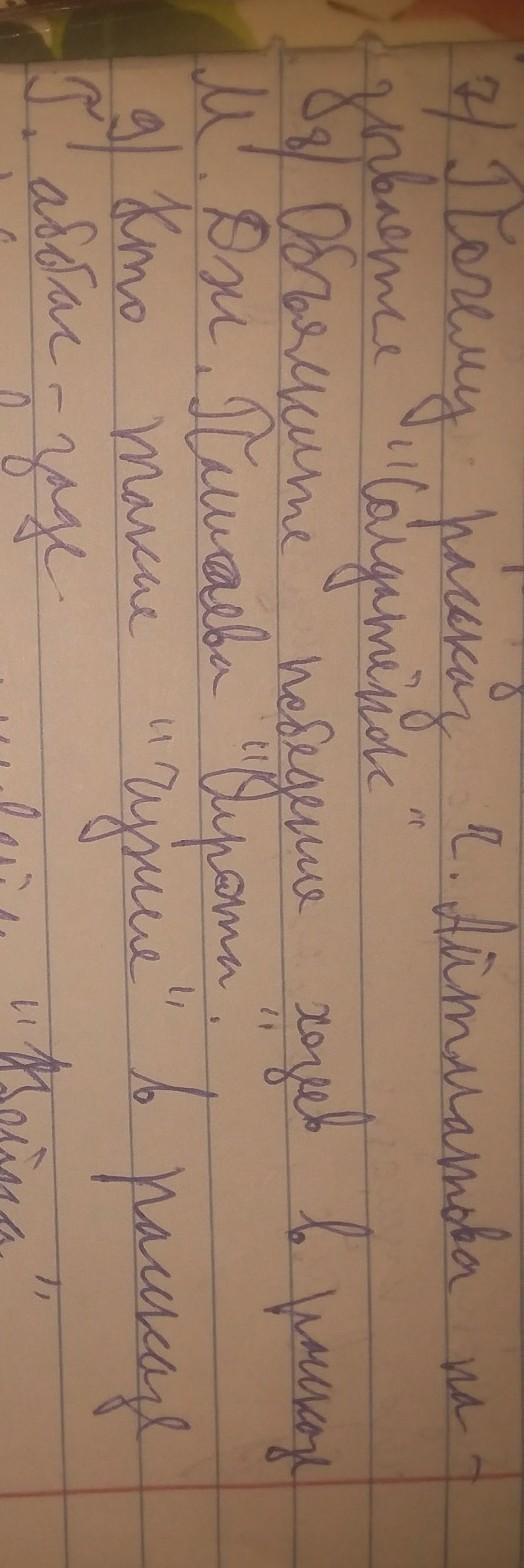 7) Почему рассказ Ч. Айтматова на-
зывается "Солдатёнок"
8) Объясните поведение хозяев в рассказе
М. Дж. Пашаева "Врата".
9) Кто такие "чужие" в рассказе
Г. аббас-заде